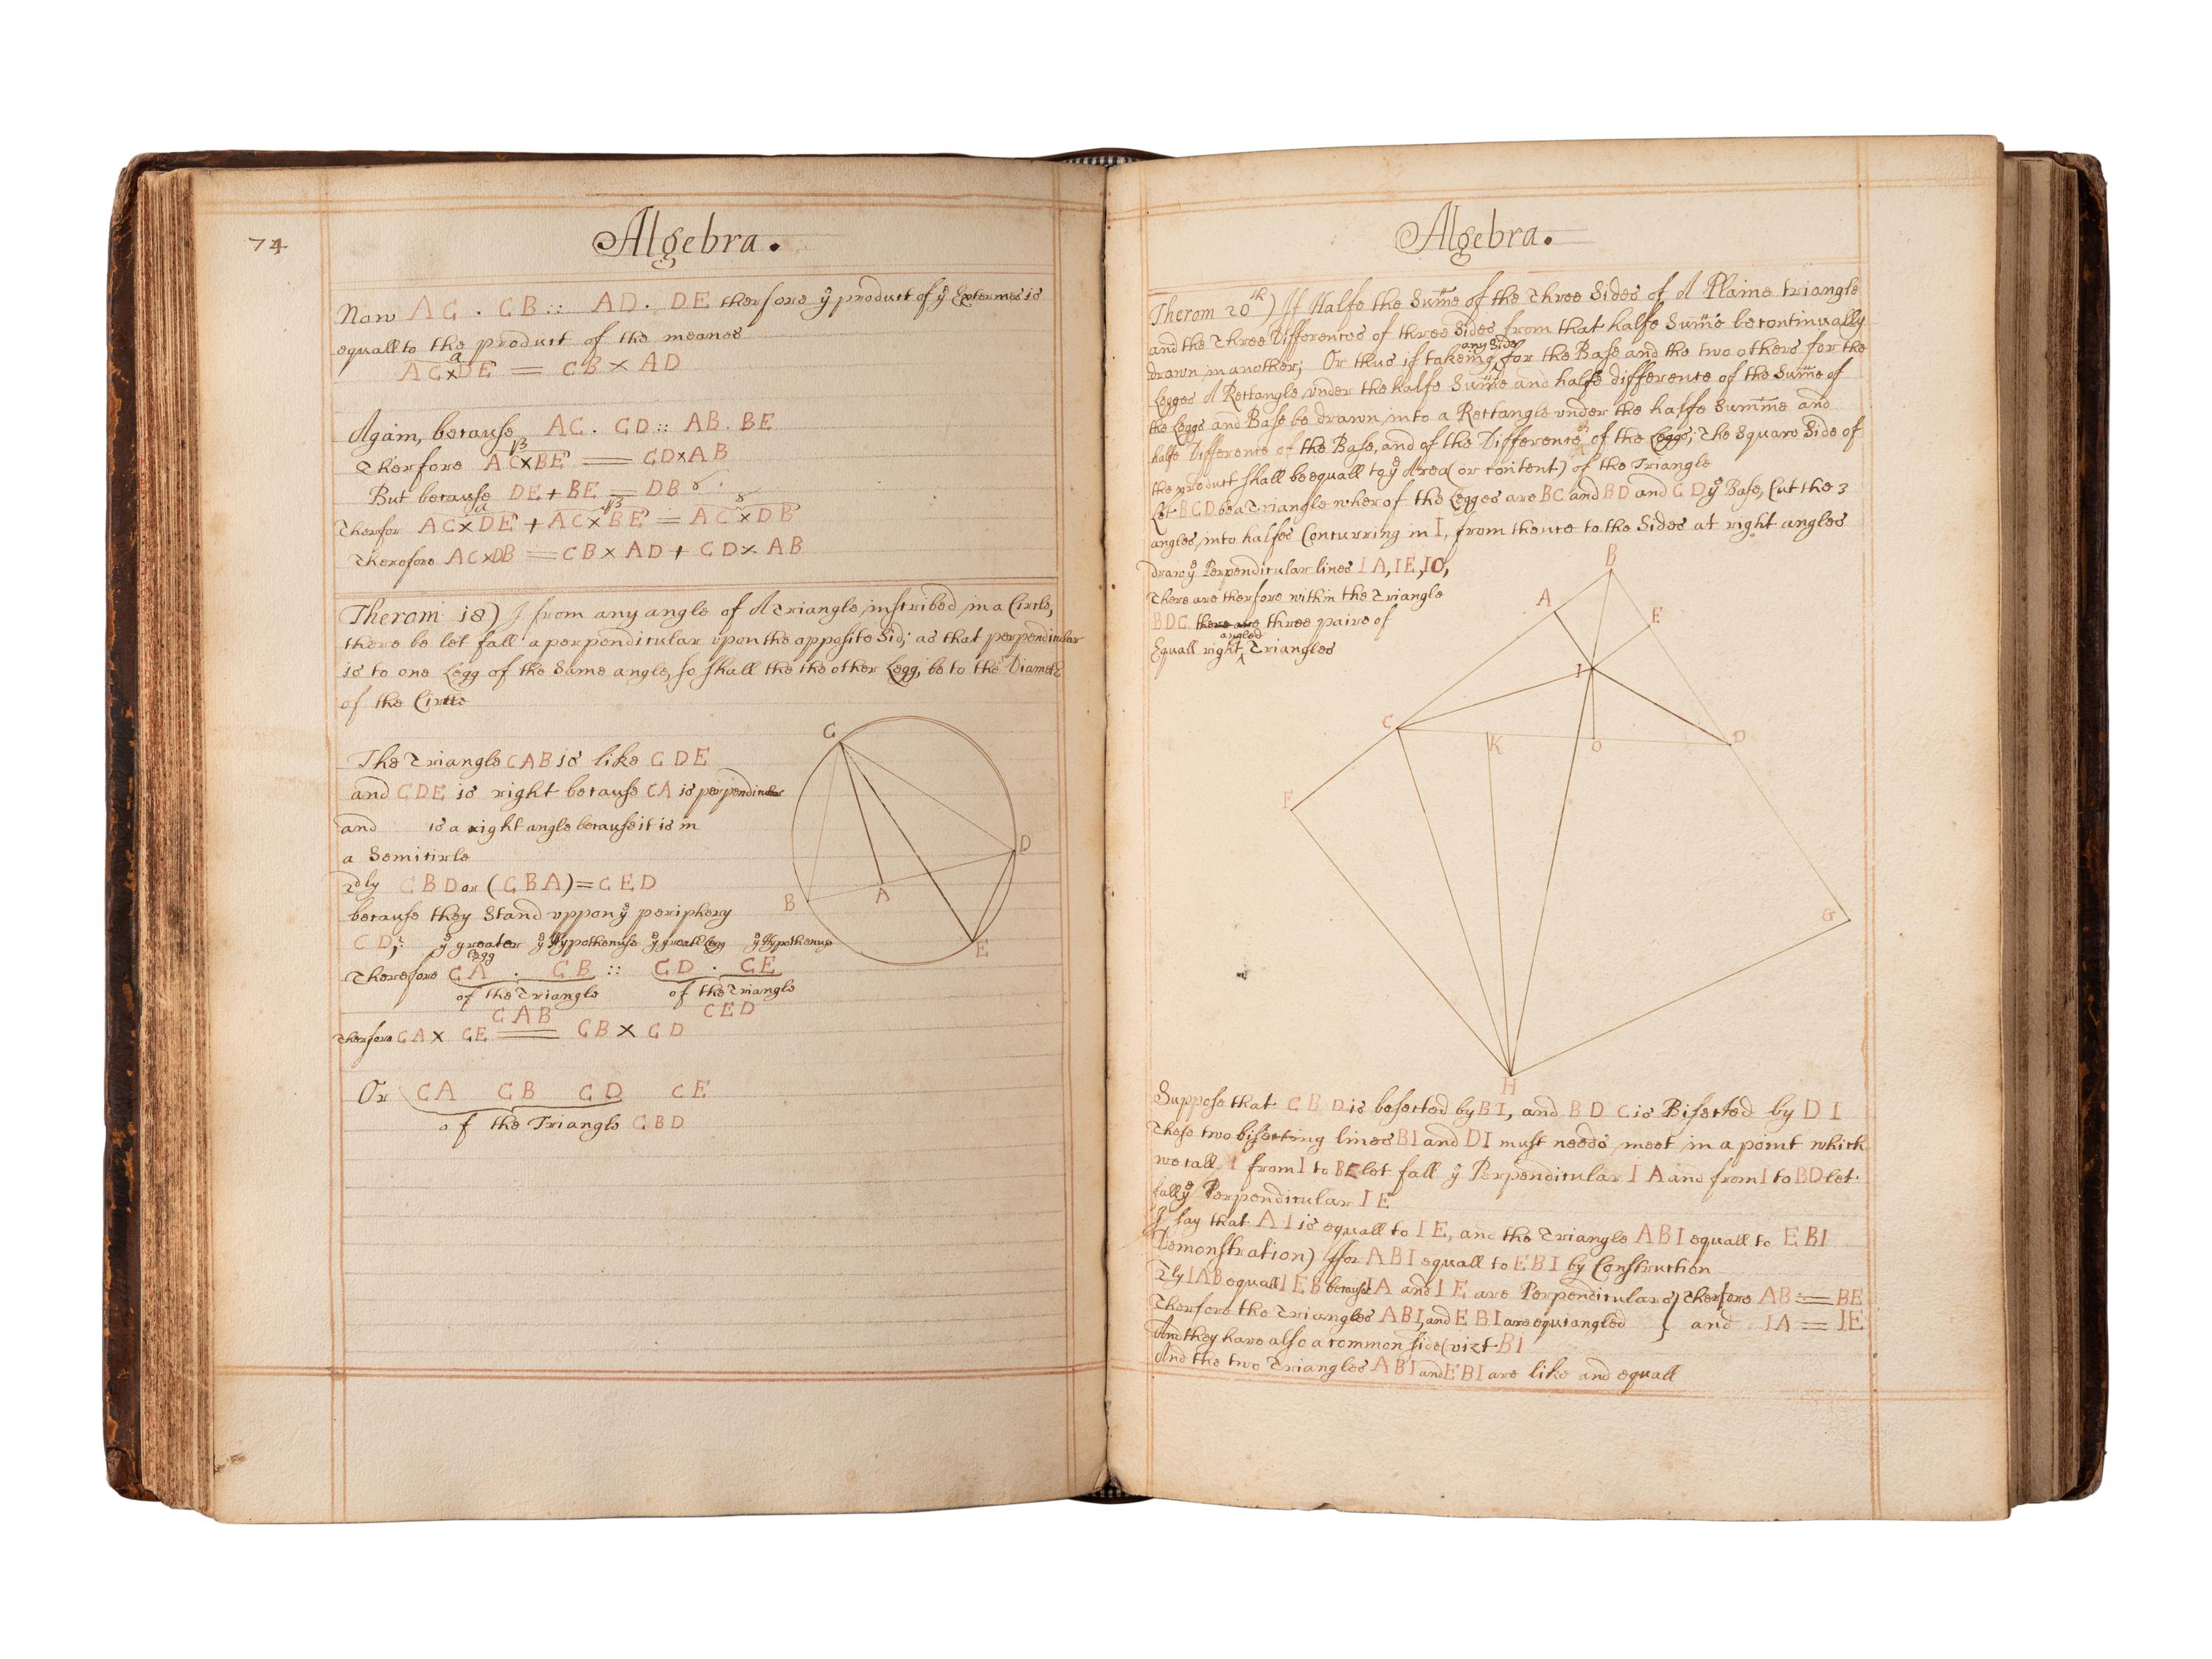 74
Algebra.
Now AC . CB :: AD . DE therfore yͤ product of yͤ Extermes is
equall to the product of the meanes
a
AC×DE = CB × AD
Again, because AC . CD :: AB . BE
Therfore AC×BE = CD×AB
But because DE + BE = DB
Therfor AC×DE + AC×BE = AC×DB
Therefore AC×DB = CB × AD + CD × AB
Therom 18) If from any angle of A Triangle inscribed in a Circle,
there be let fall a perpendicular upon the opposite Sid; as that perpendicular
is to one Legg of the Same angle, so shall the the other Legg, be to the Diameter
of the Circle
The Triangle CAB is like CDE
and CDE is right because CA is perpendicular
and is a right angle because it is in
a Semicirle
2dly CBD or (CBA) = CED
because they Stand uppon yͤ periphery
CD; yͤ greater Legg yͤ Hypothenuse yͤ great Legg yͤ Hypothenus
Therefore CA . CB :: CD . CE
of the Triangle of the Triangle
CAB CED
Therfore CA × CE = CB × CD
Or CA CB CD CE
of the Triangle CBD
C
D
B
A
E
Algebra.
Therom 20th) If Halfe the Sume of the Three Sides of A Plaine triangle
and the Three Differences of three Sides from that halfe Sume be continually
drawn in another; Or thus if takeing any Side for the Base and the two others for the
Legges A Rectangle under the halfe Sume and halfe difference of the Sume of
the Leggs and Base be drawn into a Rectangle under the halfe Summe and
halfe Difference of the Base, and of the Difference of the Leggs; The Square Side of
the product shall be equall to yͤ Area (or content) of the Triangle
Let BCD be a Triangle wherof the Legges are BC and BD and CD yͤ Base, Cut the 3
angles into halfes Concurring in I, from thence to the Sides at right angles
draw yͤ Perpendicular lines IA, IE, IO,
There are therfore within the Triangle
BDC there are three paire of
Equall right angled Triangles
B
A
E
I
C
K
O
D
F
G
H
Suppose that CBD is besected by BI, and BDC is Bisected by DI
These two bisecting lines BI and DI must needs meet in a point which
we call I from I to BC let fall yͤ Perpendicular IA and from I to BD let
fall yͤ Perpendicular IE
I say that AI is equall to IE, and the Triangle ABI equall to EBI
Demonstration) ffor ABI equall to EBI by Construction
2ly IAB equall IEB because IA and IE are Perpendiculars) Therfore AB = BE
Therfore the Triangles ABI, and EBI are equiangled } and IA = IE
And they have also a common side (vizt BI
And the two Triangles ABI and EBI are like and equall